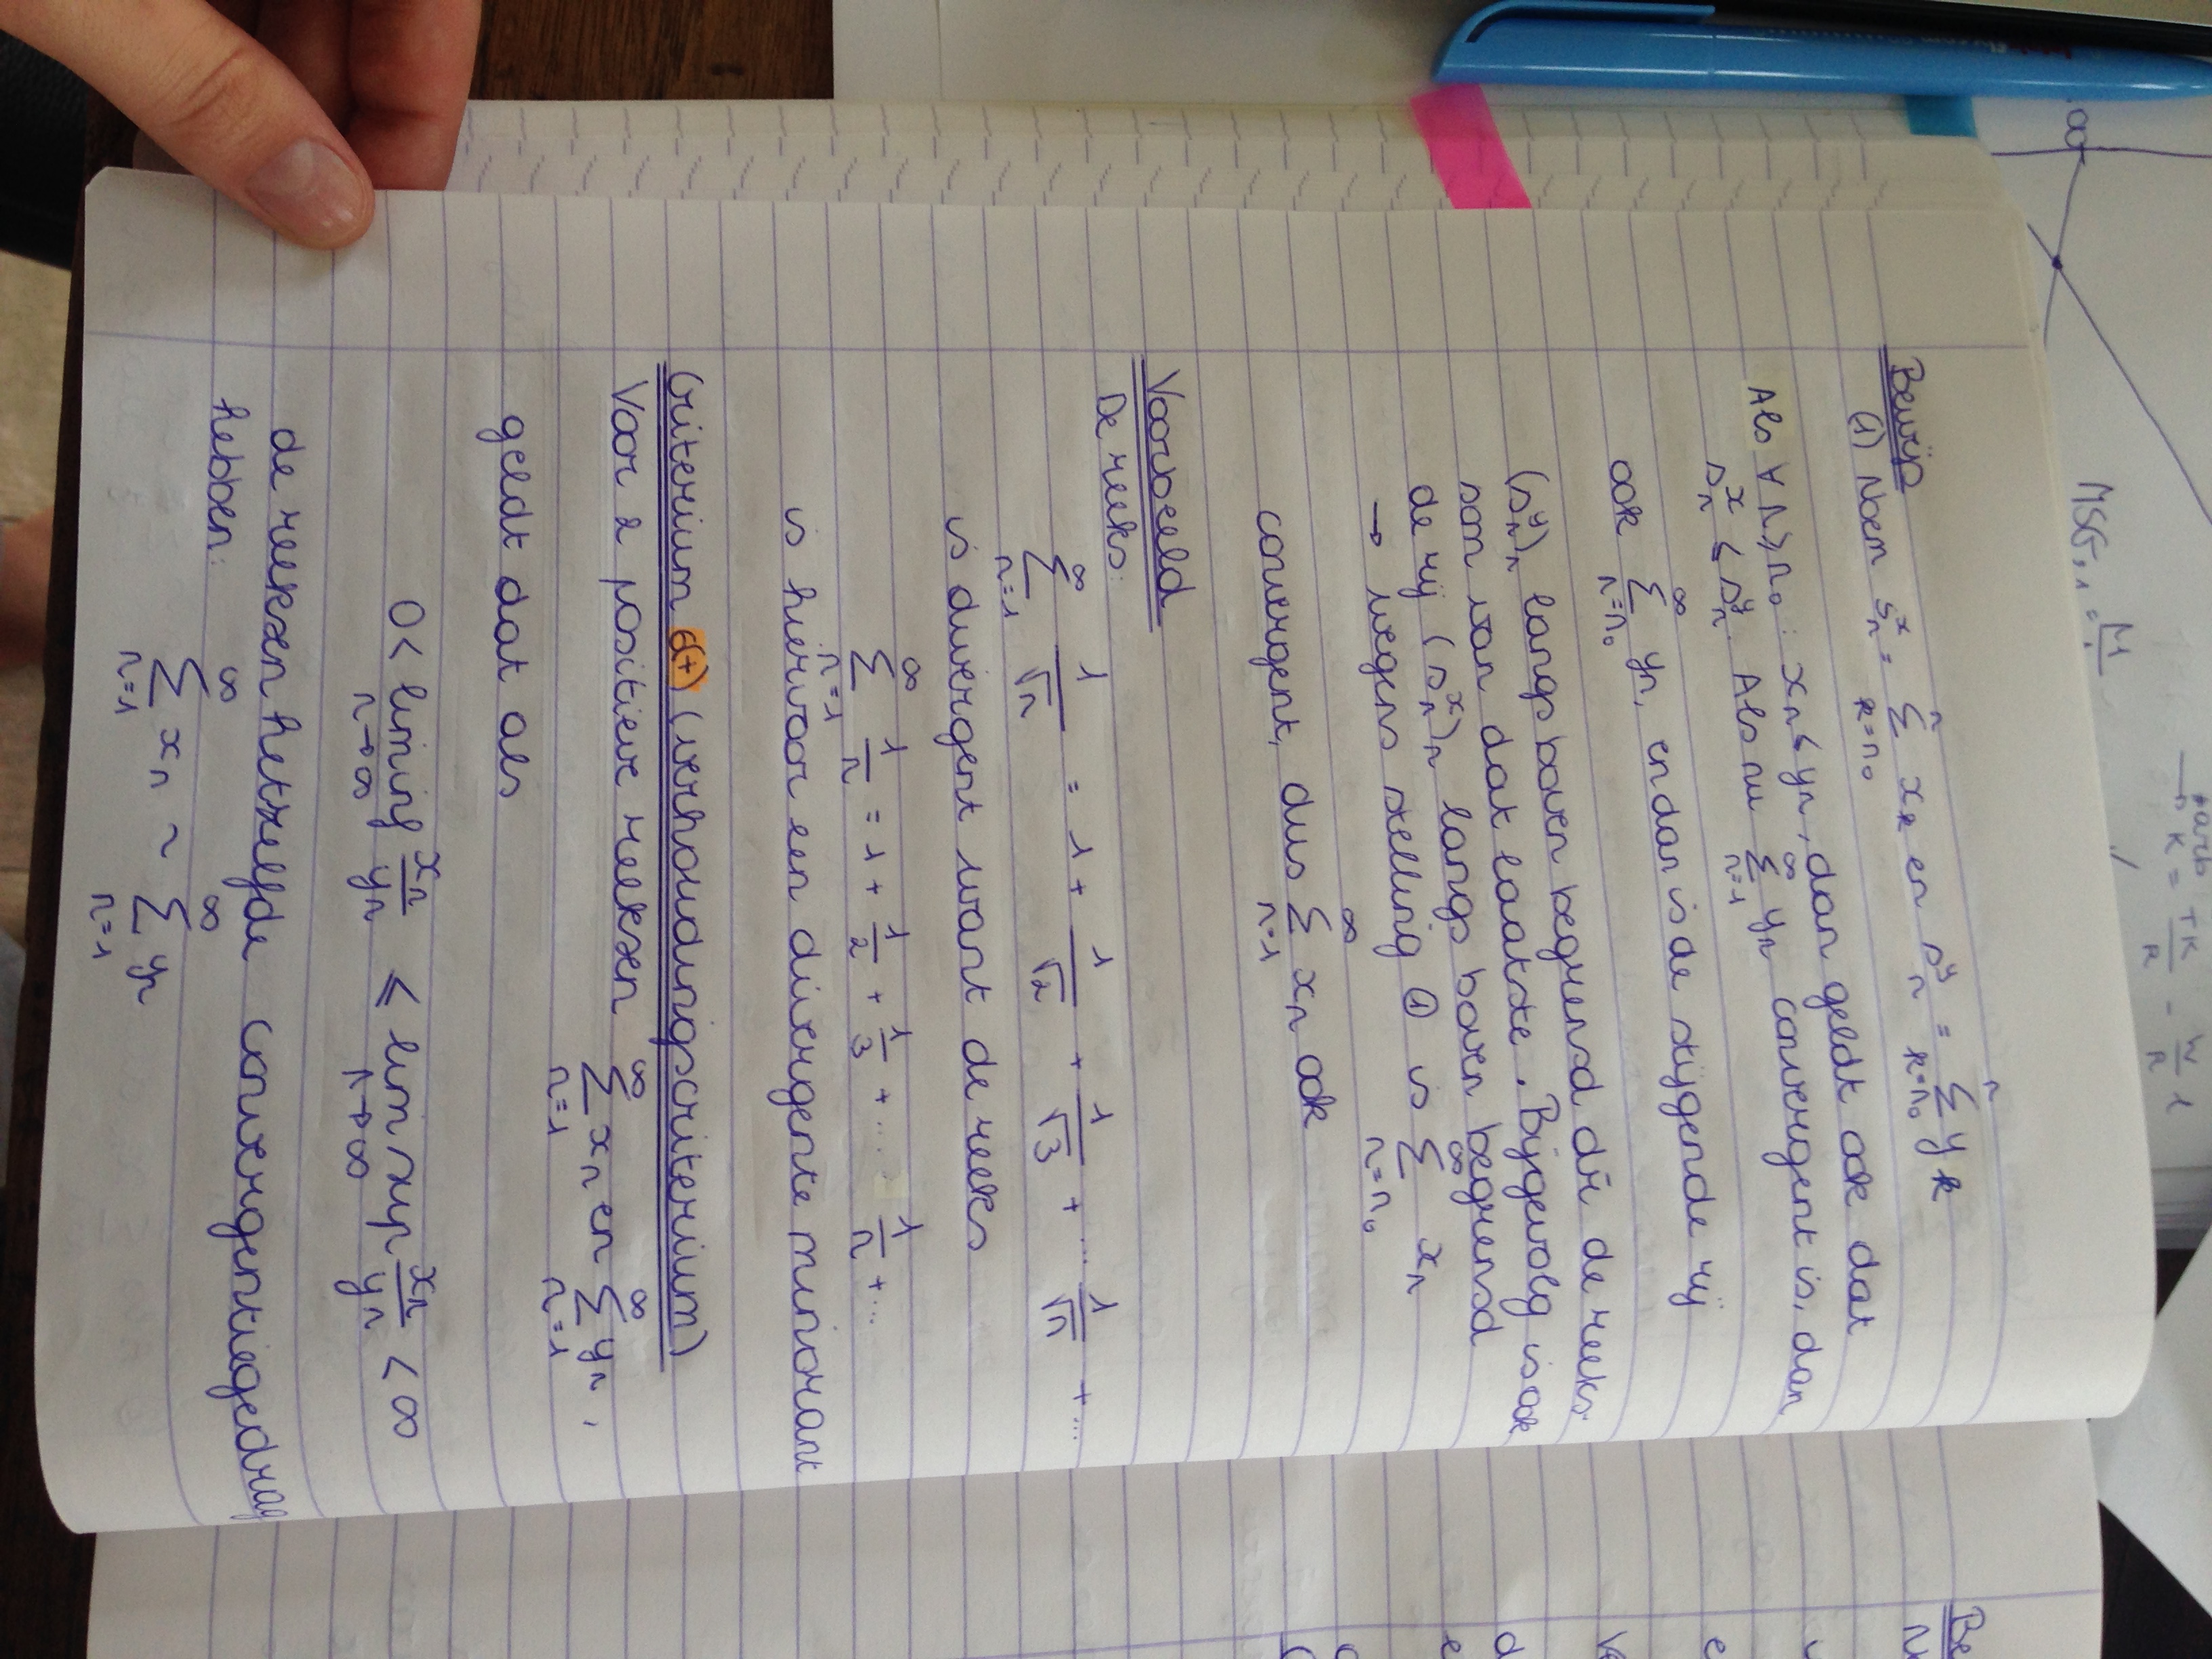 Bewijs
(1) Noem s_n^x = Σ_{k=n₀}^{n} x_k en s_n^y = Σ_{k=n₀}^{n} y_k
Als ∀ n ≥ n₀ : x_n ≤ y_n, dan geldt ook dat
s_n^x ≤ s_n^y. Als nu Σ_{n=1}^{∞} y_n convergent is, dan
ook Σ_{n=n₀}^{∞} y_n, en dan is de stijgende rij
(s_n^y)_n langs boven begrensd dr de reeks
som van dat laatste. Bijgevolg is ook
de rij (s_n^x)_n langs boven begrensd
→ wegens stelling ① is Σ_{n=n₀}^{∞} x_n
convergent, dus Σ_{n=1}^{∞} x_n ook
Voorbeeld
De reeks:
Σ_{n=1}^{∞} 1/√n = 1 + 1/√2 + 1/√3 + ... 1/√n + ...
is divergent want de reeks
Σ_{n=1}^{∞} 1/n = 1 + 1/2 + 1/3 + ... 1/n + ...
is hiervoor een divergente minorant
Criterium 6(+) (verhoudingscriterium)
Voor 2 positieve reeksen Σ_{n=1}^{∞} x_n en Σ_{n=1}^{∞} y_n,
geldt dat als
0 < lim inf_{n→∞} x_n/y_n ≤ lim sup_{n→∞} x_n/y_n < ∞
de reeksen hetzelfde convergentiegedrag
hebben:
Σ_{n=1}^{∞} x_n ~ Σ_{n=1}^{∞} y_n
Be